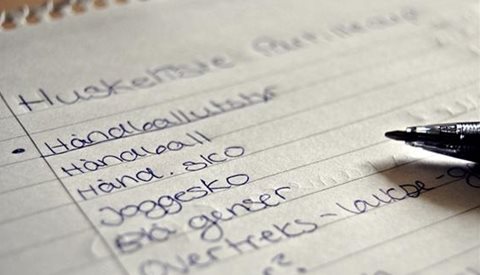 Huskeliste Partille cup
• Håndballutstyr
Håndball
Hånd. sko
Joggesko
Blå genser
Overtreks-